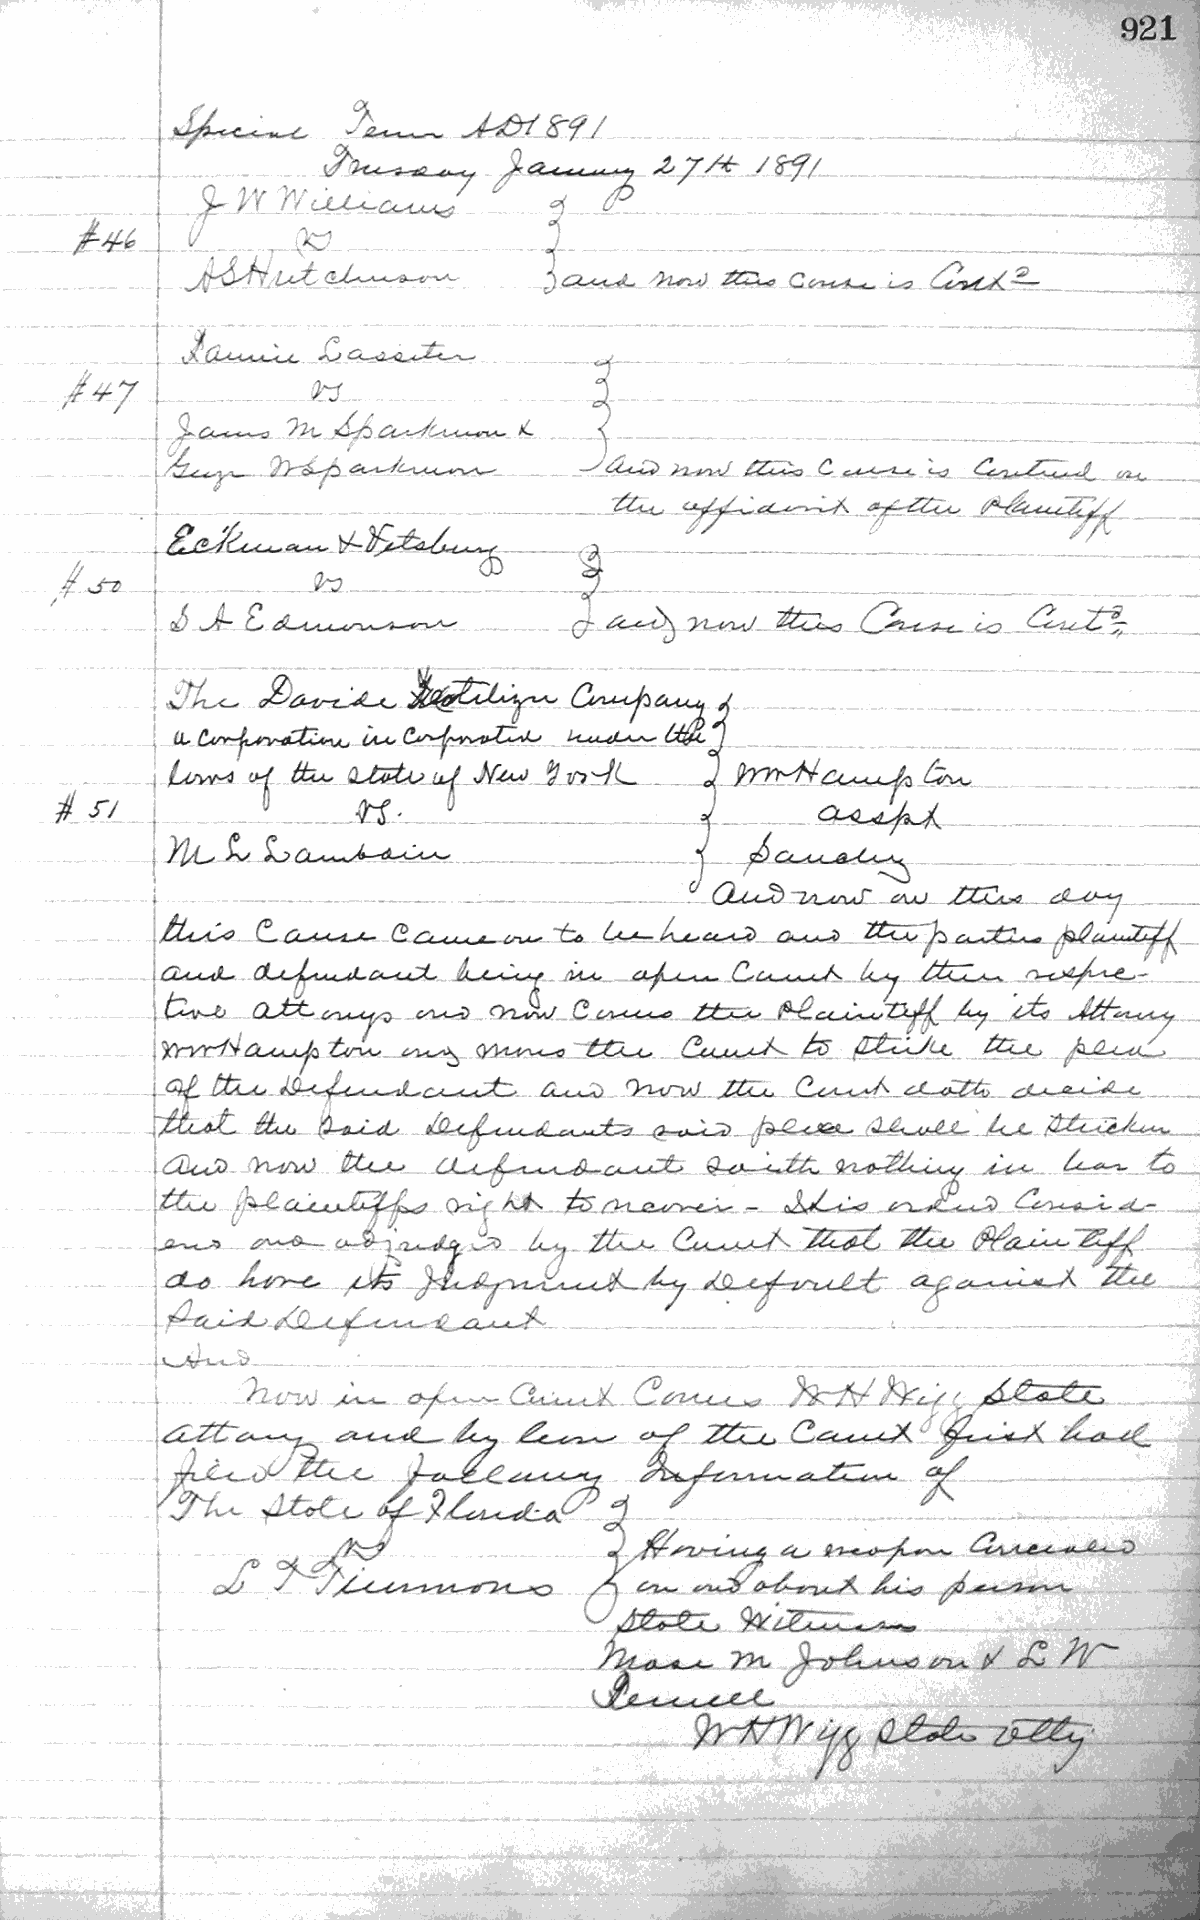 921
Special Term AD1891
Tuesday January 27th 1891
J W Williams
#46 vs
A S Hutchinson } and now this cause is Contd
Fannie Lassiter
#47 vs
James M Sparkman &
Geoge W Sparkman } and now this Cause is Contnud on
the affidavit of the Plaintiff
Eckman & Vetsburg
#50 vs
S A Edmonson } and now this Cause is Contd
The Davide Fertilizer Company
a corporation incorporated under the
laws of the State of New York } Wm Hampton
#51 vs. asspt
M L Lambdin }
And now on this day
this Cause came on to be heard and the parties plaintiff
and defendant being in open Court by their respec-
tive attornys and now Comes the Plaintiff by its Attorny
Wm Hampton and moves the Court to Strike the plea
of the Defendant and now the Court doth decide
that the said Defendants said plea shall be Stricken
And now the defendant saith nothing in bar to
the plaintiffs right to recover - It is orderd Consid-
erd and adjudged by the Court that the Plaintiff
do have its Judgment by Default against the
Said Defendant
And
Now in open Court Comes W H Wigg State
attorny and by leave of the Court first had
filed the following Information of
The State of Florida
vs } Having a weapon Concealed
L T Timmons on and about his person
State Witnesses
Mose M Johnson & L W
W H Wigg State Atty